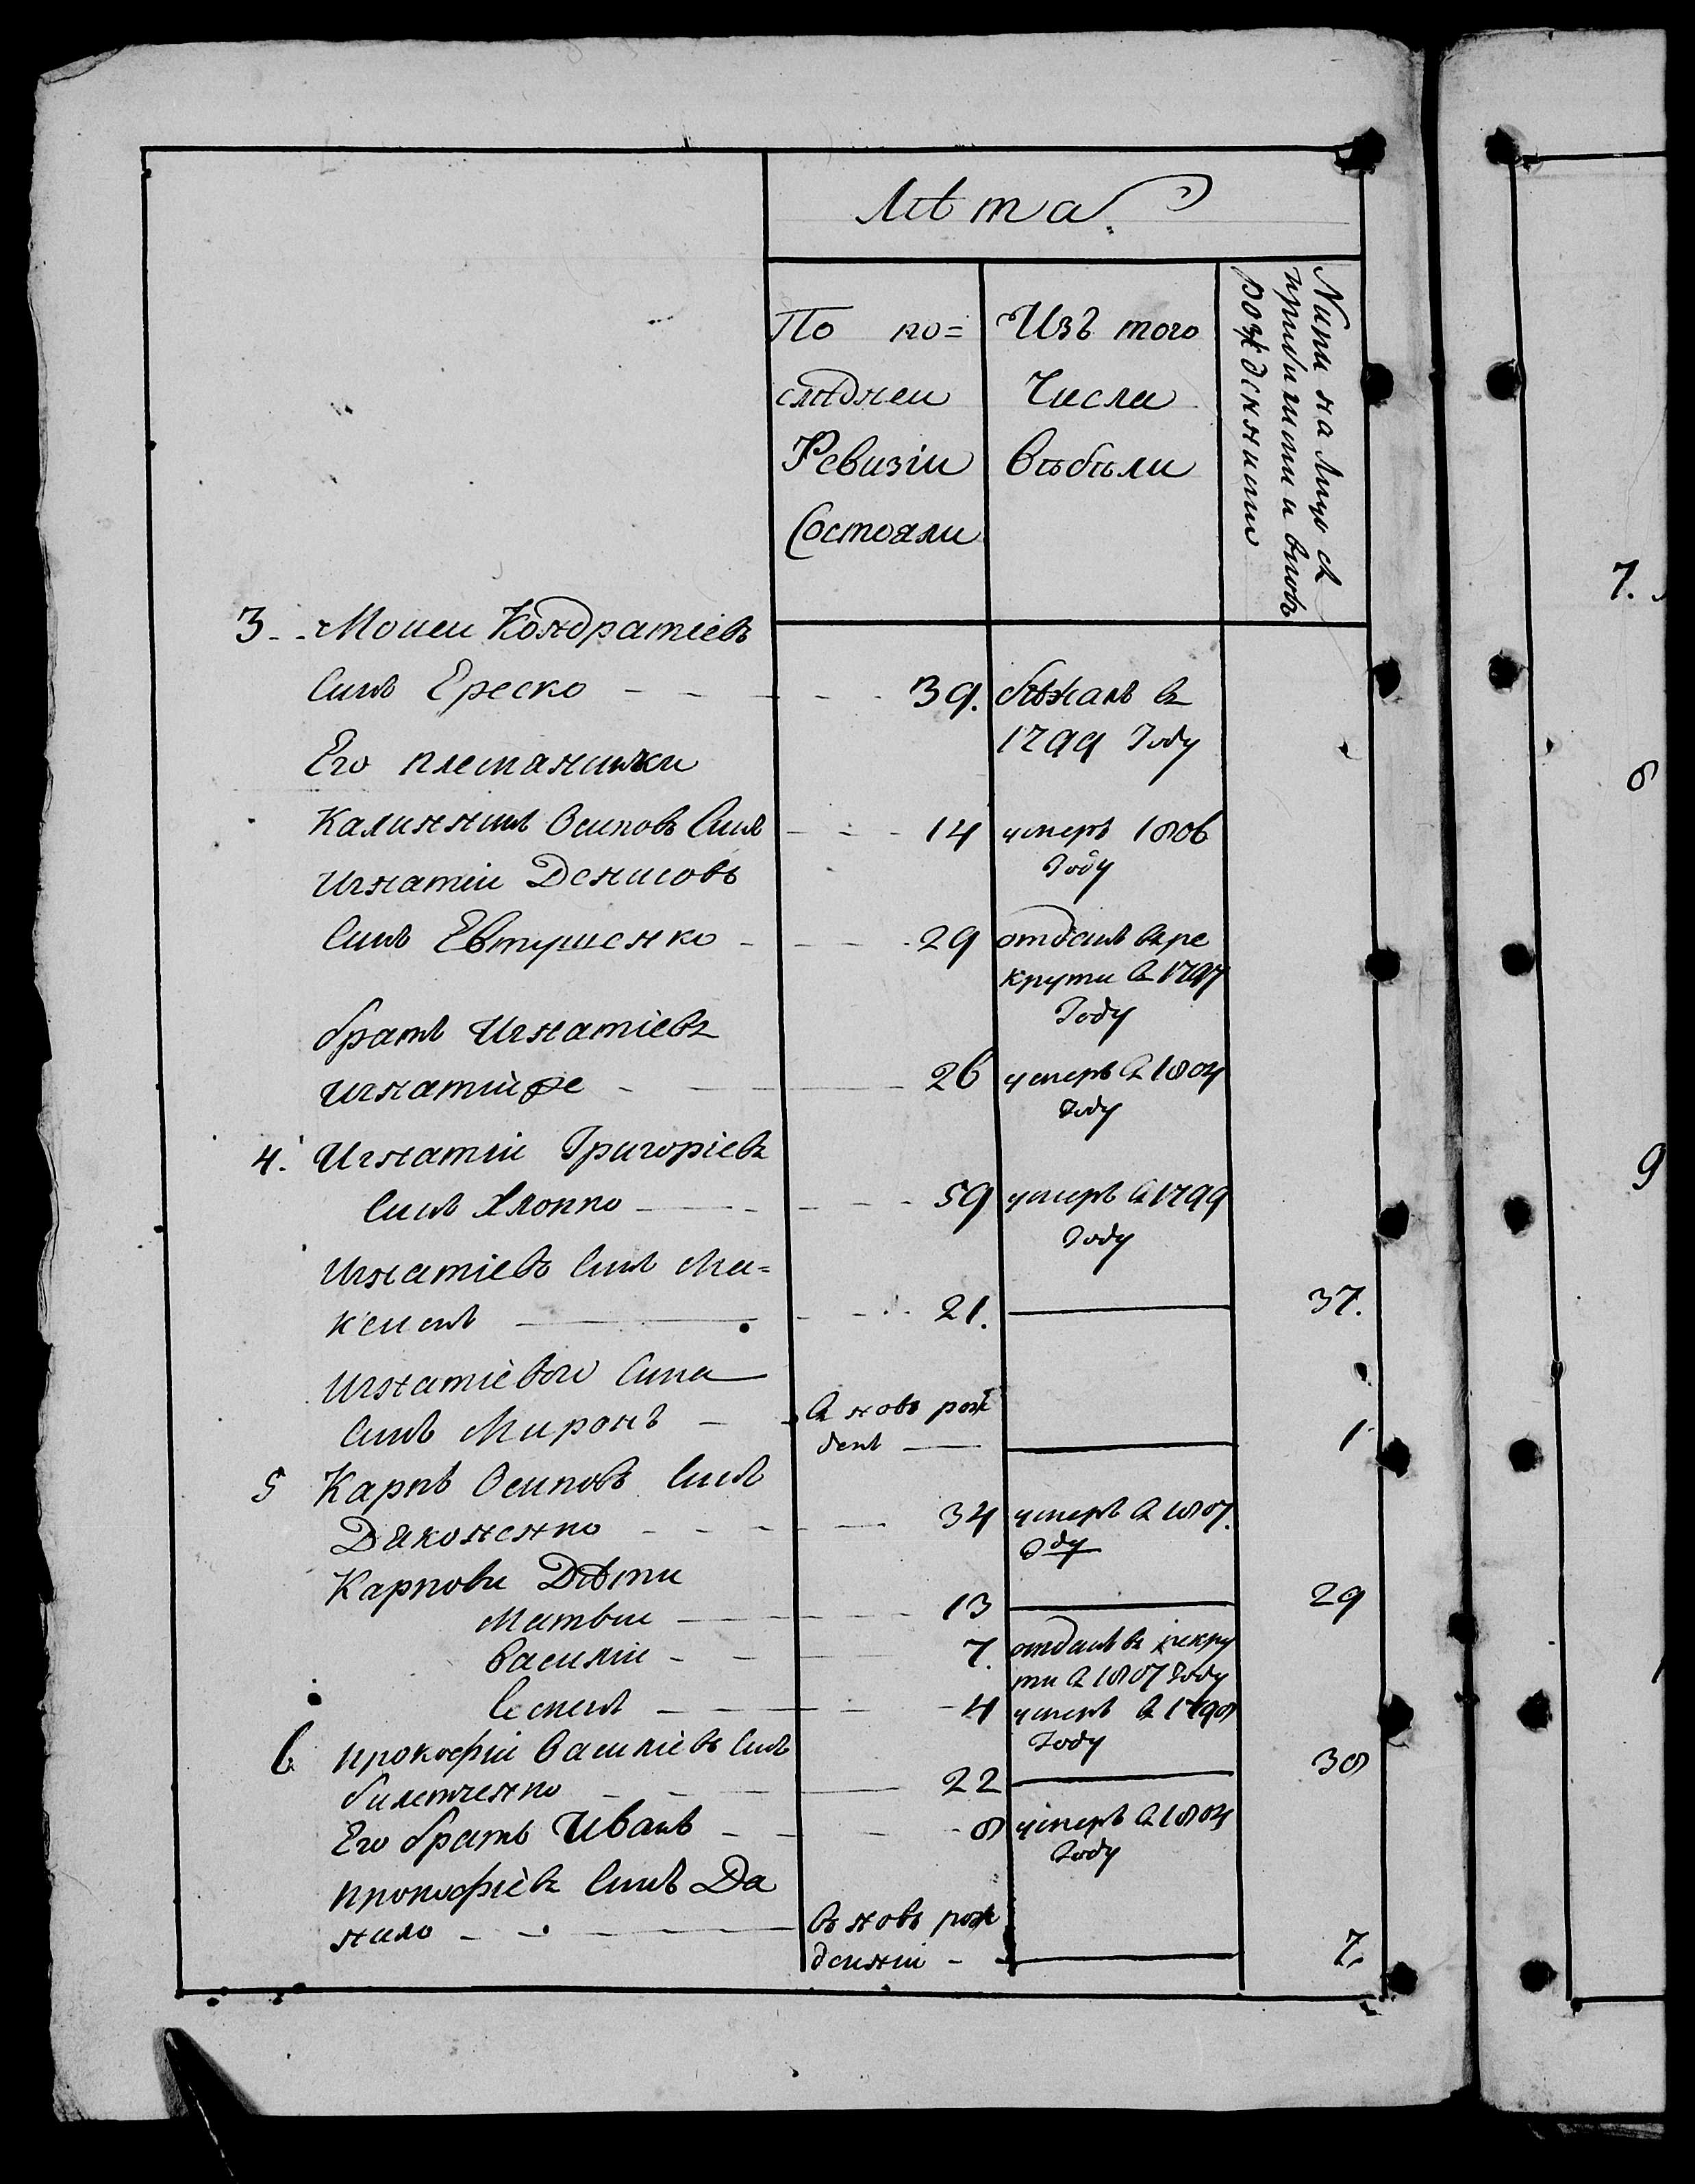 Лѣта.
По по=
слѣднеи
Ревизіи
Состояли
Изъ того
Числа
выбыли
Нине на Лицо съ
прибилими и вновь
рожденними
3 Моисеи Кондратіевъ
Синъ Ереско 39. бѣжалъ въ
1799 Году
Его племянники
Калинникъ Осиповъ Синъ 14 умеръ 1806
Году
Игнатіи Денисовъ
Синъ Евтушенко 29 отданъ въ ре
крути въ 1797
Году
братъ Игнатіевъ
Игнатій же 26 умеръ въ 1804
Году
4. Игнатіи Григоріевъ
Синъ Хлопко 59 умеръ въ 1799
Году
Игнатіевъ Синъ Ма=
ксимъ 21. 37.
Игнатіевого Сина
Синъ Миронъ въ новь рож
денъ 1
5 Карпъ Осиповъ Синъ
Дяконенко 34 умеръ въ 1807.
Году
Карпови Дѣти
Матвіи 13 29
Василіи 7. отданъ въ рекру
ти въ 1807 Году
Семенъ 4 умеръ въ 1798
Году
6 Прокофіи Василіевъ Синъ
22 38
Его братъ Иванъ 8 умеръ въ 1804
Году
Прокофіевъ Синъ Да
нило въ новь рож
денніи 7.
7.
8
9